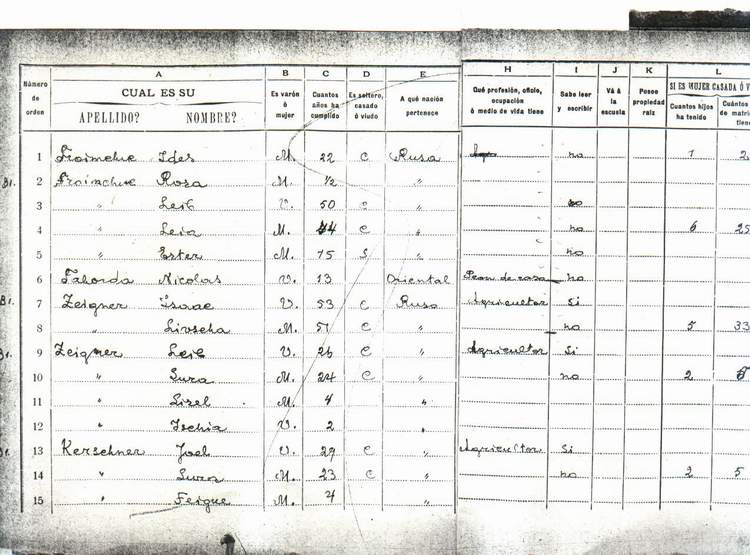 A B C D E H I J K L
Número de orden CUAL ES SU APELLIDO? NOMBRE? Es varón ó mujer Cuantos años ha cumplido Es soltero, casado ó viudo A qué nación pertenece Qué profesión, oficio, ocupación ó medio de vida tiene Sabe leer y escribir Vá á la escuela Posee propiedad raiz SI ES MUJER CASADA Ó V Cuantos hijos ha tenido Cuántos de matri tiene
1 Ides M. 22 c Rusa no 1 2
2 Rosa M. ½ "
3 " Leib V. 50 c " no
4 " Leia M. 44 c " no 6 25
5 " Ester M. 15 s " no
6 Taborda Nicolas V. 13 Oriental Peon de casa no
7 Zeigner Isaac V. 53 c Rusa Agricultor Si
8 " M. 51 c " no 5 33
9 Zeigner Leib V. 26 c " Agricultor Si
10 " Sura M. 24 c " no 2 5
11 " Lisel M. 4 "
12 " Ischia V. 2 "
13 Kerschner Joel V. 29 c Agricultor Si
14 " Sura M. 23 c " no 2 5
15 " Feigue M. 4 "